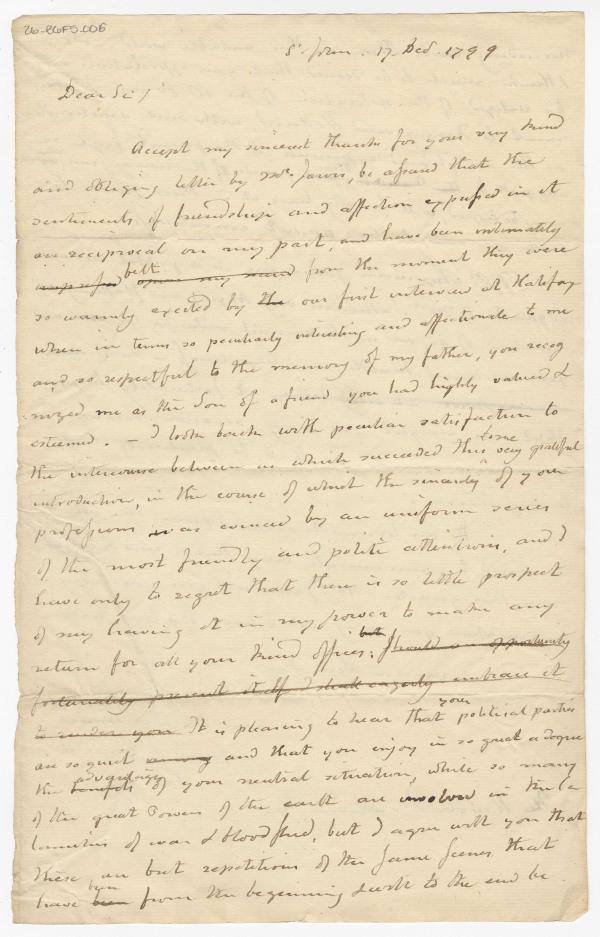 26-86FS-006
St. John. 17. Decr. 1799
Dear Sir/
Accept my sincerest thanks for your very kind
and obliging letter by Mr. Jarvis, be assured that the
sentiments of friendship and affection expressed in it
are reciprocal on my part, and have been intimately
impressed felt upon my mind from the moment they were
so warmly excited by the our first interview at Halifax
when in terms so peculiarly interesting and affectionate to me
and so respectful to the memory of my father, you recog
nized me as the Son of a friend you had highly valued &
esteemed. – I look back with peculiar satisfaction to
the intercourse between us which succeeded this to me very grateful
introduction, in the course of which the sincerity of your
professions was evinced by an uniform series
of the most friendly and polite attentions, and I
have only to regret that there is so little prospect
of my having it in my power to make any
return for all your kind offices; but should an opportunity
fortunately present itself I shall eagerly embrace it
to render you It is pleasing to hear that your political parties
are so quiet among and that you enjoy in so great a degree
the benefits advantages of your neutral situation, while so many
of the great Powers of the earth are involved in the Ca
lamities of war & bloodshed, but I agree with you that
these are but repetitions of the same Scenes that
have been from the beginning & will to the end be